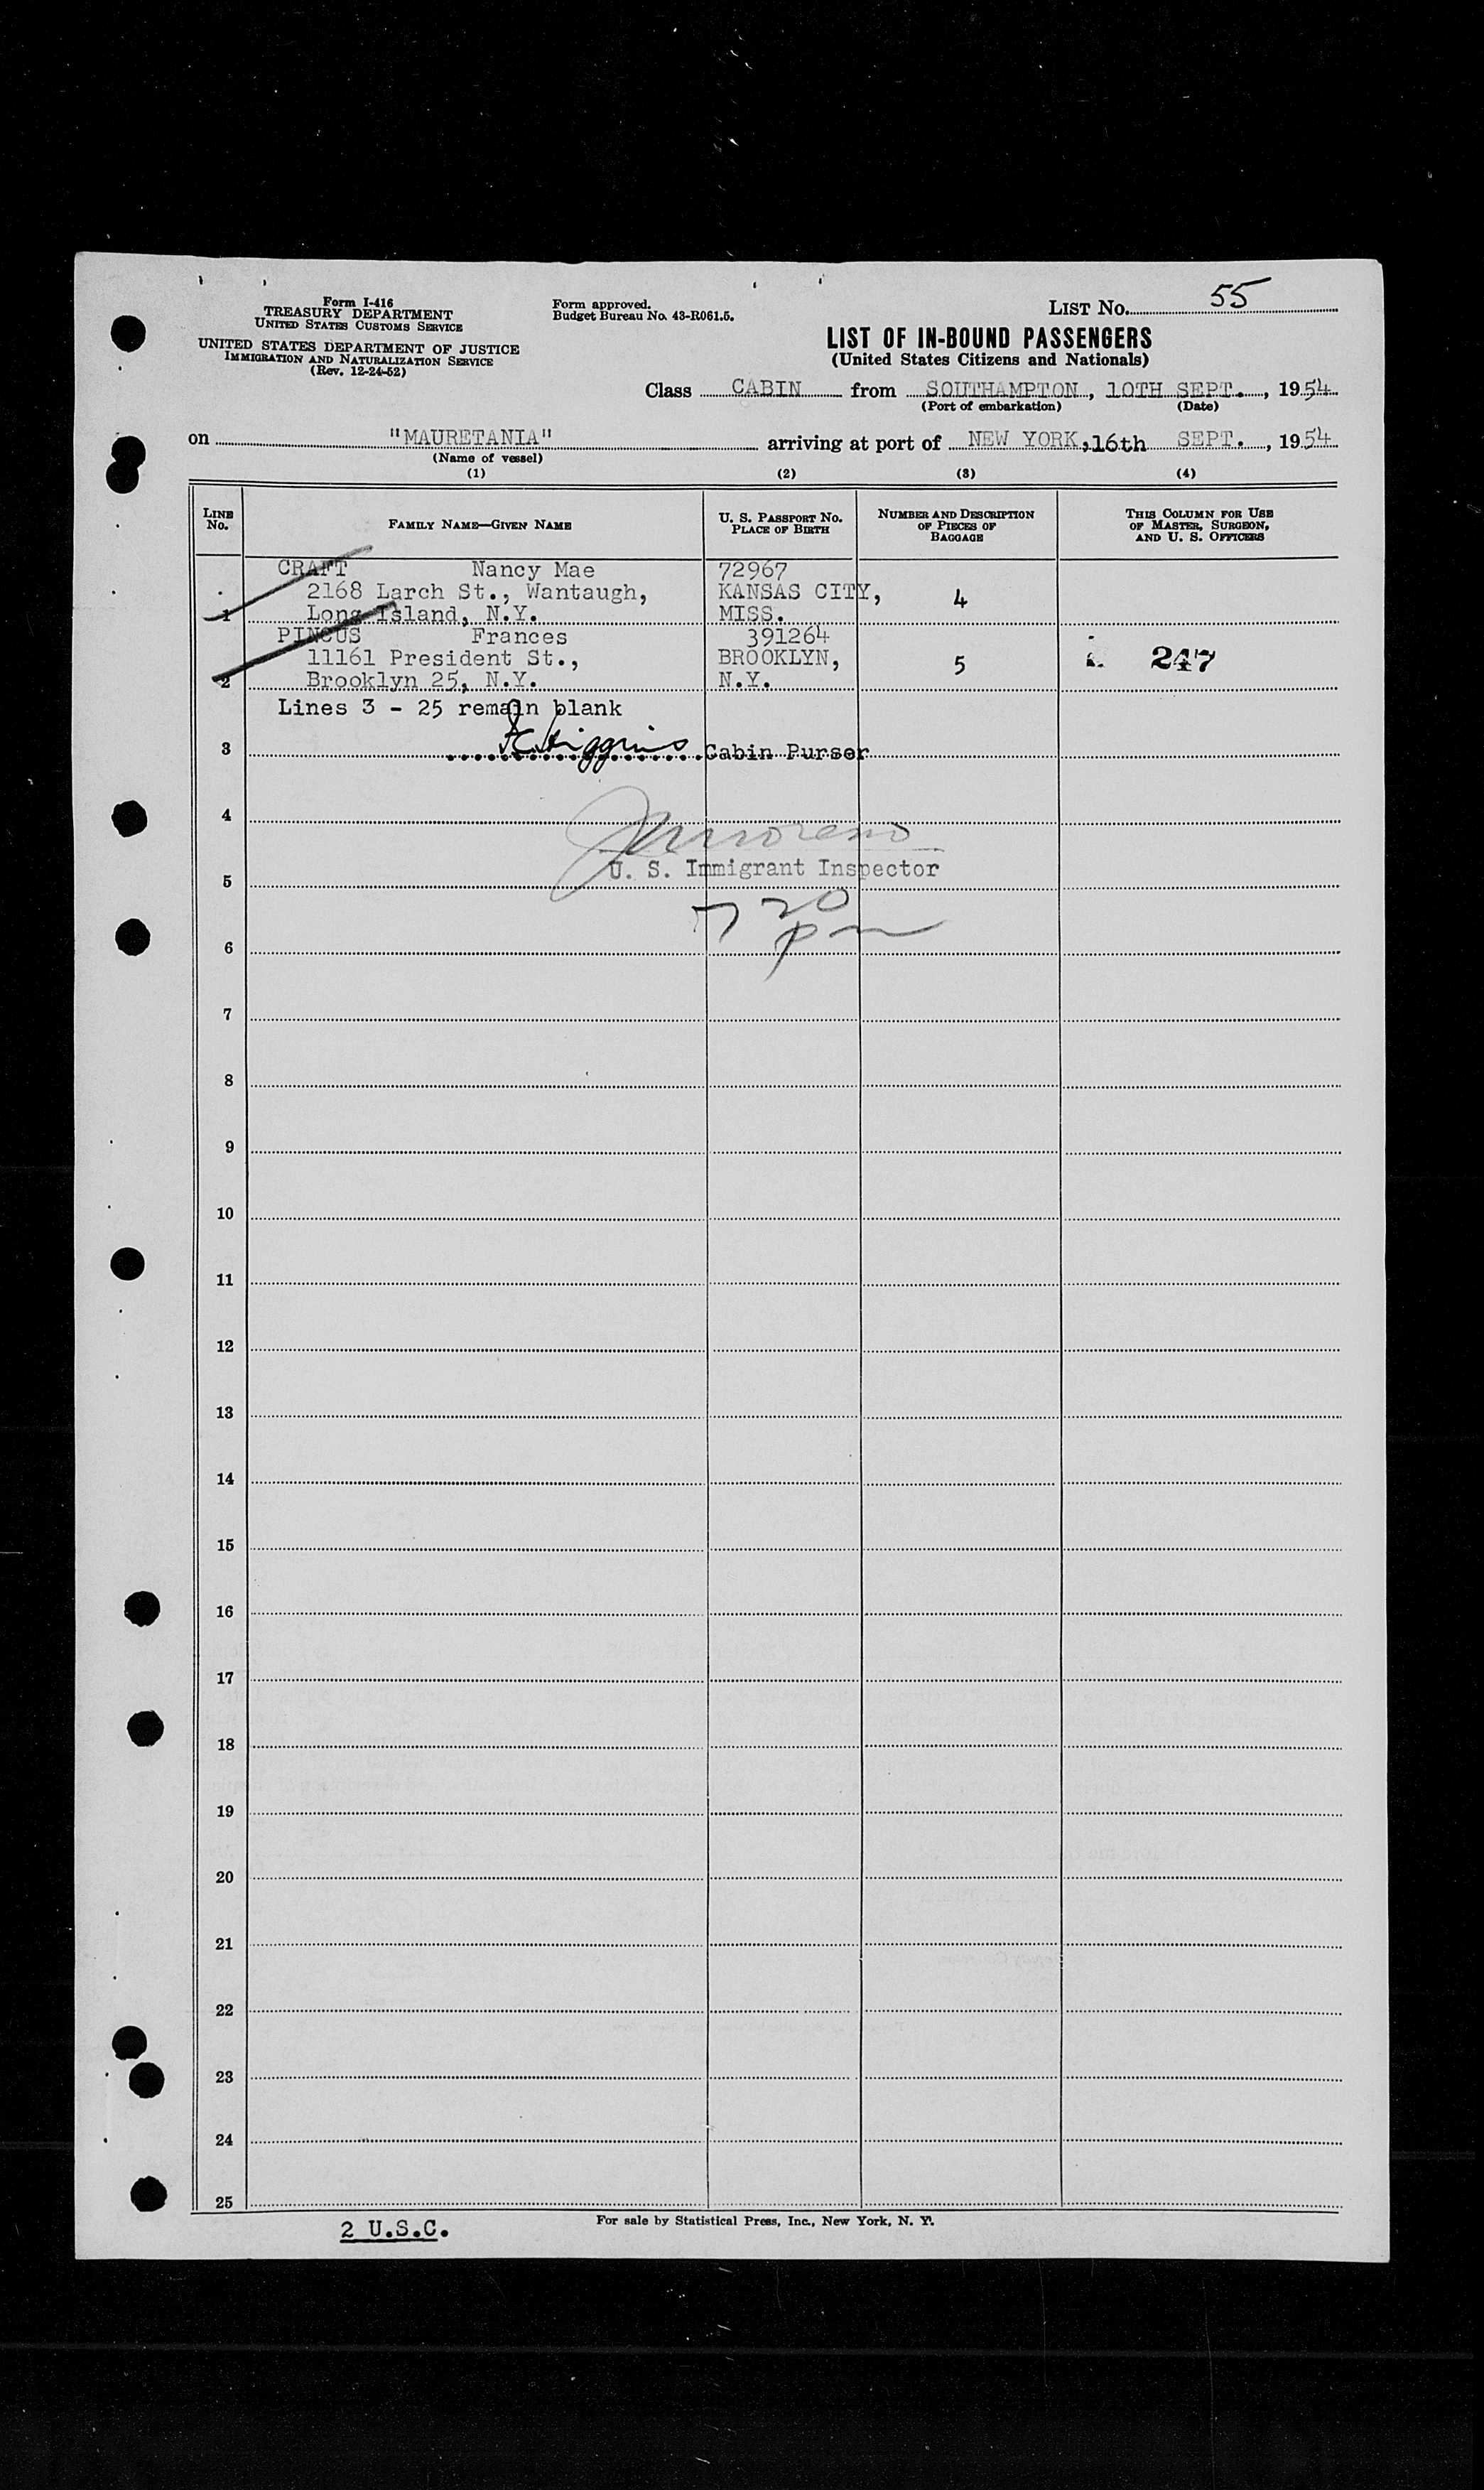 Form I-416
TREASURY DEPARTMENT
UNITED STATES CUSTOMS SERVICE
UNITED STATES DEPARTMENT OF JUSTICE
IMMIGRATION AND NATURALIZATION SERVICE
(Rev. 12-24-52)
Form approved.
Budget Bureau No. 43-R061.5.
LIST No. 55
LIST OF IN-BOUND PASSENGERS
(United States Citizens and Nationals)
Class CABIN from SOUTHAMPTON, 10TH SEPT., 1954
(Port of embarkation) (Date)
on "MAURETANIA" arriving at port of NEW YORK, 16th SEPT., 1954
(Name of vessel)
(1) (2) (3) (4)
LINE No.
FAMILY NAME—GIVEN NAME
U. S. PASSPORT NO.
PLACE OF BIRTH
NUMBER AND DESCRIPTION
OF PIECES OF
BAGGAGE
THIS COLUMN FOR USE
OF MASTER, SURGEON,
AND U. S. OFFICERS
CRAFT Nancy Mae 72967
2168 Larch St., Wantaugh, KANSAS CITY, 4
1 Long Island, N.Y. MISS.
PINCUS Frances 391264
11161 President St., BROOKLYN, 5 247
2 Brooklyn 25, N.Y. N.Y.
Lines 3 - 25 remain blank
3 Higgins Cabin Purser
4 Moreno
U. S. Immigrant Inspector
5
7 20
pm
6
7
8
9
10
11
12
13
14
15
16
17
18
19
20
21
22
23
24
25
2 U.S.C.
For sale by Statistical Press, Inc., New York, N. Y.